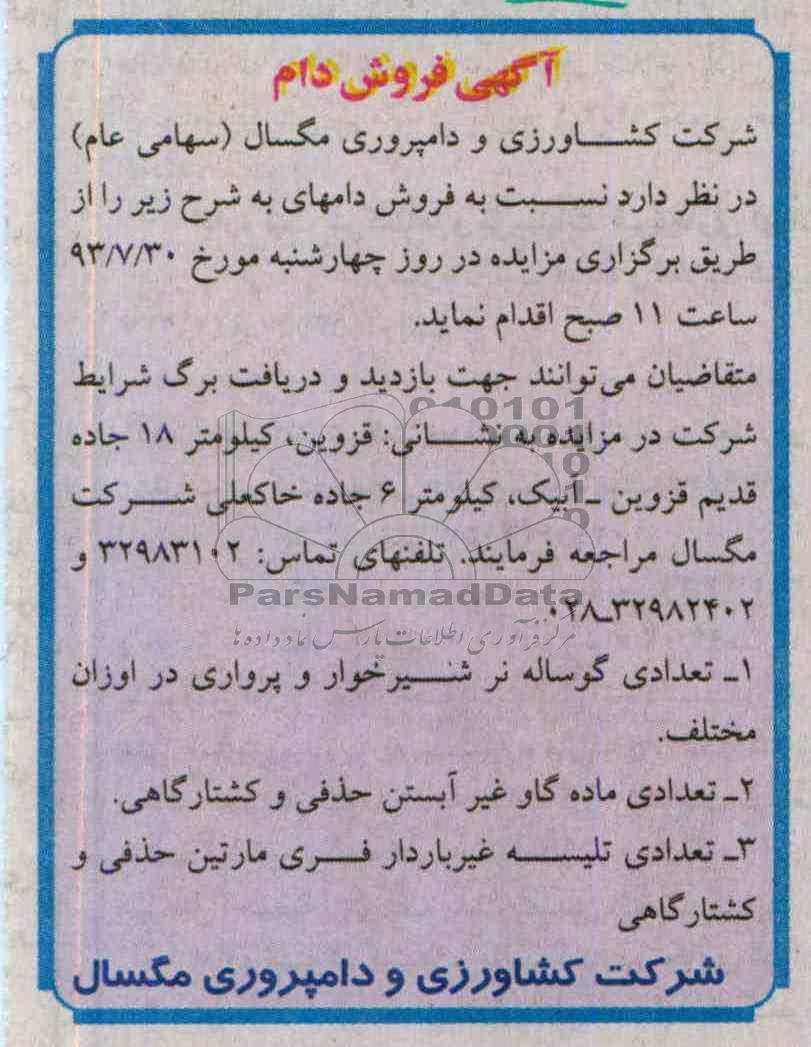 آگهی فروش دام
شرکت کشاورزی و دامپروری مگسال (سهامی عام)
در نظر دارد نسبت به فروش دامهای به شرح زیر را از
طریق برگزاری مزایده در روز چهارشنبه مورخ ۹۳/۷/۳۰
ساعت ۱۱ صبح اقدام نماید.
متقاضیان می‌توانند جهت بازدید و دریافت برگ شرایط
شرکت در مزایده به نشانی: قزوین، کیلومتر ۱۸ جاده
قدیم قزوین ـ آبیک، کیلومتر ۶ جاده خاکعلی شرکت
مگسال مراجعه فرمایند. تلفنهای تماس: ۳۲۹۸۳۱۰۲ و
۰۲۸ـ۳۲۹۸۲۴۰۲
ParsNamadData
مرکز فرآوری اطلاعات پارس نماد داده ها
۱ـ تعدادی گوساله نر شیرخوار و پرواری در اوزان
مختلف.
۲ـ تعدادی ماده گاو غیر آبستن حذفی و کشتارگاهی.
۳ـ تعدادی تلیسه غیرباردار فری مارتین حذفی و
کشتارگاهی
شرکت کشاورزی و دامپروری مگسال